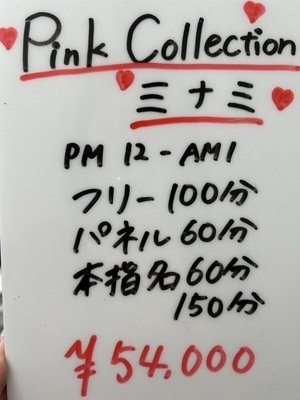 Pink Collection
三十三
PM 12-AM1
フリー 100分
パネル 60分
本指名 60分
150分
¥54,000